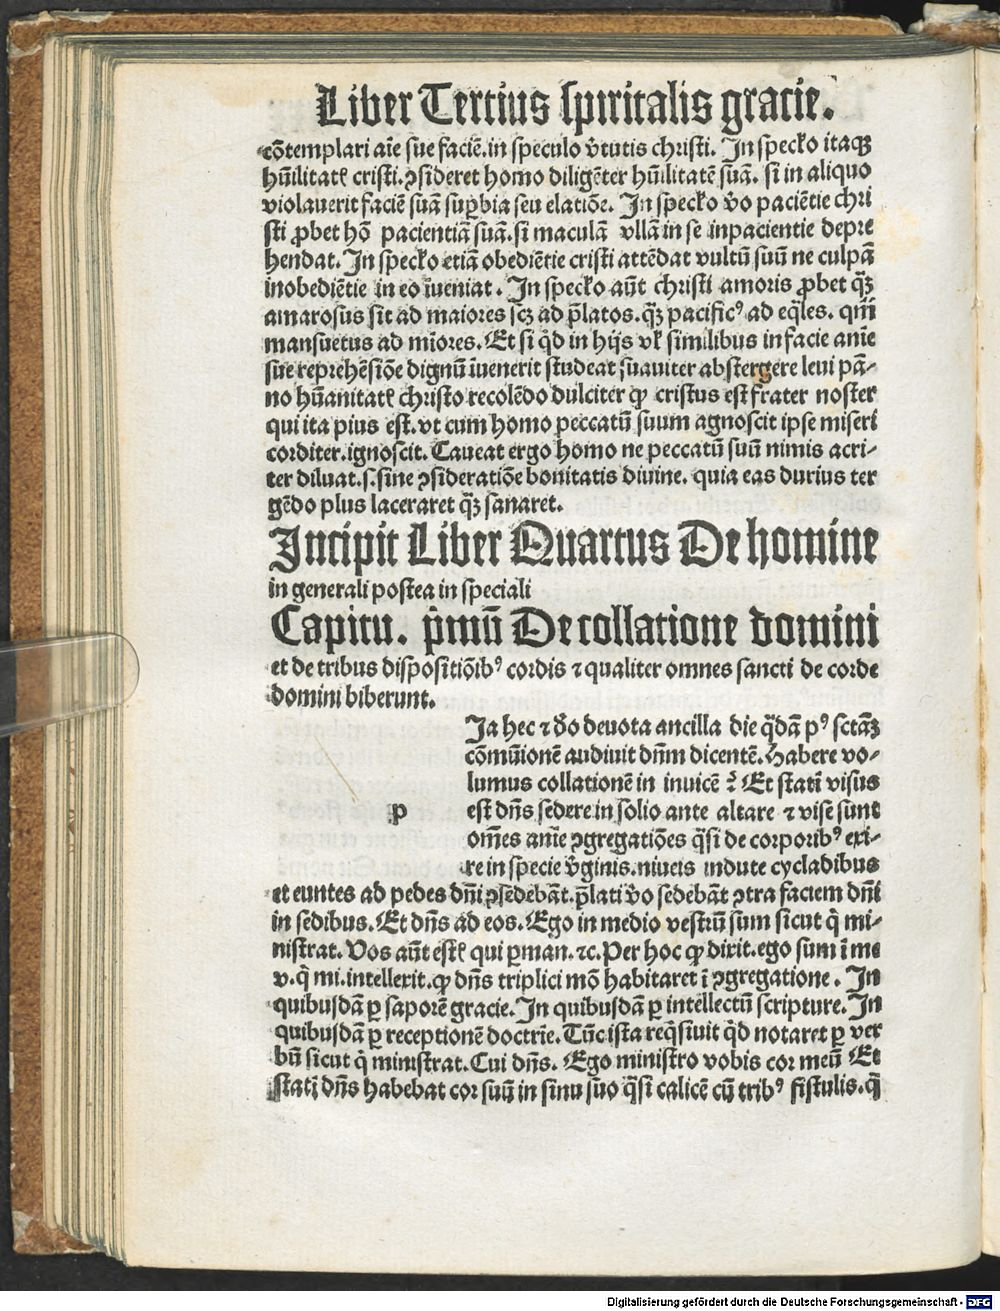 Liber Tertius spiritalis gracie.
cōtemplari aīe sue faciē.in speculo v̄tutis christi. In specl̄o itaqꝫ
hūilitatē cristi.ꝯsideret homo diligēter hūilitatē suā. si in aliquo
violauerit faciē suā sup̄bia seu elatiōe. In specl̄o v̄o paciētie chri
sti ꝓbet hō pacientiā suā.si maculā vllā in se inpacientie depre
hendat. In specl̄o etiā obediētie cristi attēdat vultū suū ne culpā
inobediētie in eo īueniat. In specl̄o aūt christi amoris ꝓbet qꝫ̄
amarosus sit ad maiores scꝫ ad p̄latos.qꝫ̄ pacificꝰ ad eq̄les. qm̄
mansuetus ad mīores. Et si qd̄ in hijs vl̄ similibus in facie anīe
sue reprehēsiōe dignū īuenerit studeat suauiter abstergere leui pā-
no hūanitatē christo recolēdo dulciter ꝙ cristus est frater noster
qui ita pius est.vt cum homo peccatū suum agnoscit ipse miseri
corditer.ignoscit. Caueat ergo homo ne peccatū suū nimis acri-
ter diluat.s.sine ꝯsideratiōe bonitatis diuine. quia eas durius ter
gēdo plus laceraret qꝫ̄ sanaret.
Incipit Liber Quartus De homine
in generali postea in speciali
Capitu. p̄mū De collatione domini
et de tribus dispositiōibꝰ cordis ⁊ qualiter omnes sancti de corde
domini biberunt.
Ja hec ⁊ d̄o deuota ancilla die q̄dā pꝰ sctāꝫ
cōmūionē audiuit dn̄m dicentē. Habere vo-
lumus collationē in inuicē ⁊̄ Et statī visus
p est dn̄s sedere in solio ante altare ⁊ vise sunt
om̄es anīe ꝯgregatiōes q̄si de corporibꝰ exi-
re in specie v̄ginis.niueis indute cycladibus
et euntes ad pedes dn̄i ꝯsedebāt.p̄lati v̄o sedebāt ꝯtra faciem dn̄i
in sedibus. Et dn̄s ad eos. Ego in medio vestrū sum sicut q̄ mi-
nistrat. Vos aūt estē qui ꝑman.⁊c. Per hoc ꝙ dixit.ego sum ī me
v.q̄ mi.intellexit.ꝙ dn̄s triplici mō habitaret ī ꝯgregatione. In
quibusdā ꝑ saporē gracie. In quibusdā ꝑ intellectū scripture. In
quibusdā ꝑ receptionē doctrīe. Tūc ista req̄siuit qd̄ notaret ꝑ ver
bū sicut q̄ ministrat. Cui dn̄s. Ego ministro vobis cor meū Et
statī dn̄s habebat cor suū in sinu suo q̄si calicē cū tribꝰ fistulis.q̄
Digitalisierung gefördert durch die Deutsche Forschungsgemeinschaft - DFG